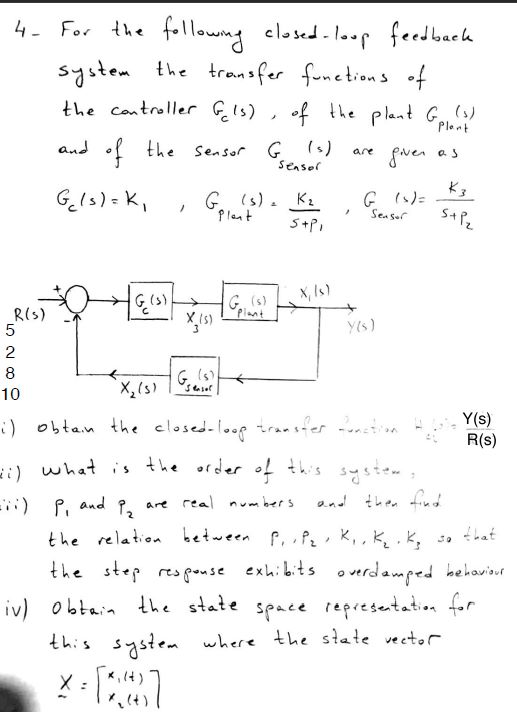 4- For the following closed-loop feedback
system the transfer functions of
the controller Gc(s), of the plant Gplant(s)
and of the sensor Gsensor(s) are given as
Gc(s) = K1 , Gplant(s) = K2/(s+p1) , Gsensor(s) = K3/(s+p2)
+
R(s)
-
Gc(s)
X3(s)
Gplant(s)
X1(s)
Y(s)
X2(s)
Gsensor(s)
5
2
8
10
i) obtain the closed-loop transfer function Y(s)/R(s)
ii) what is the order of this system,
iii) P1 and P2 are real numbers and then find
the relation between P1, P2, K1, K2, K3 so that
the step response exhibits overdamped behaviour
iv) obtain the state space representation for
this system where the state vector
X = [x1(t)
x2(t)]